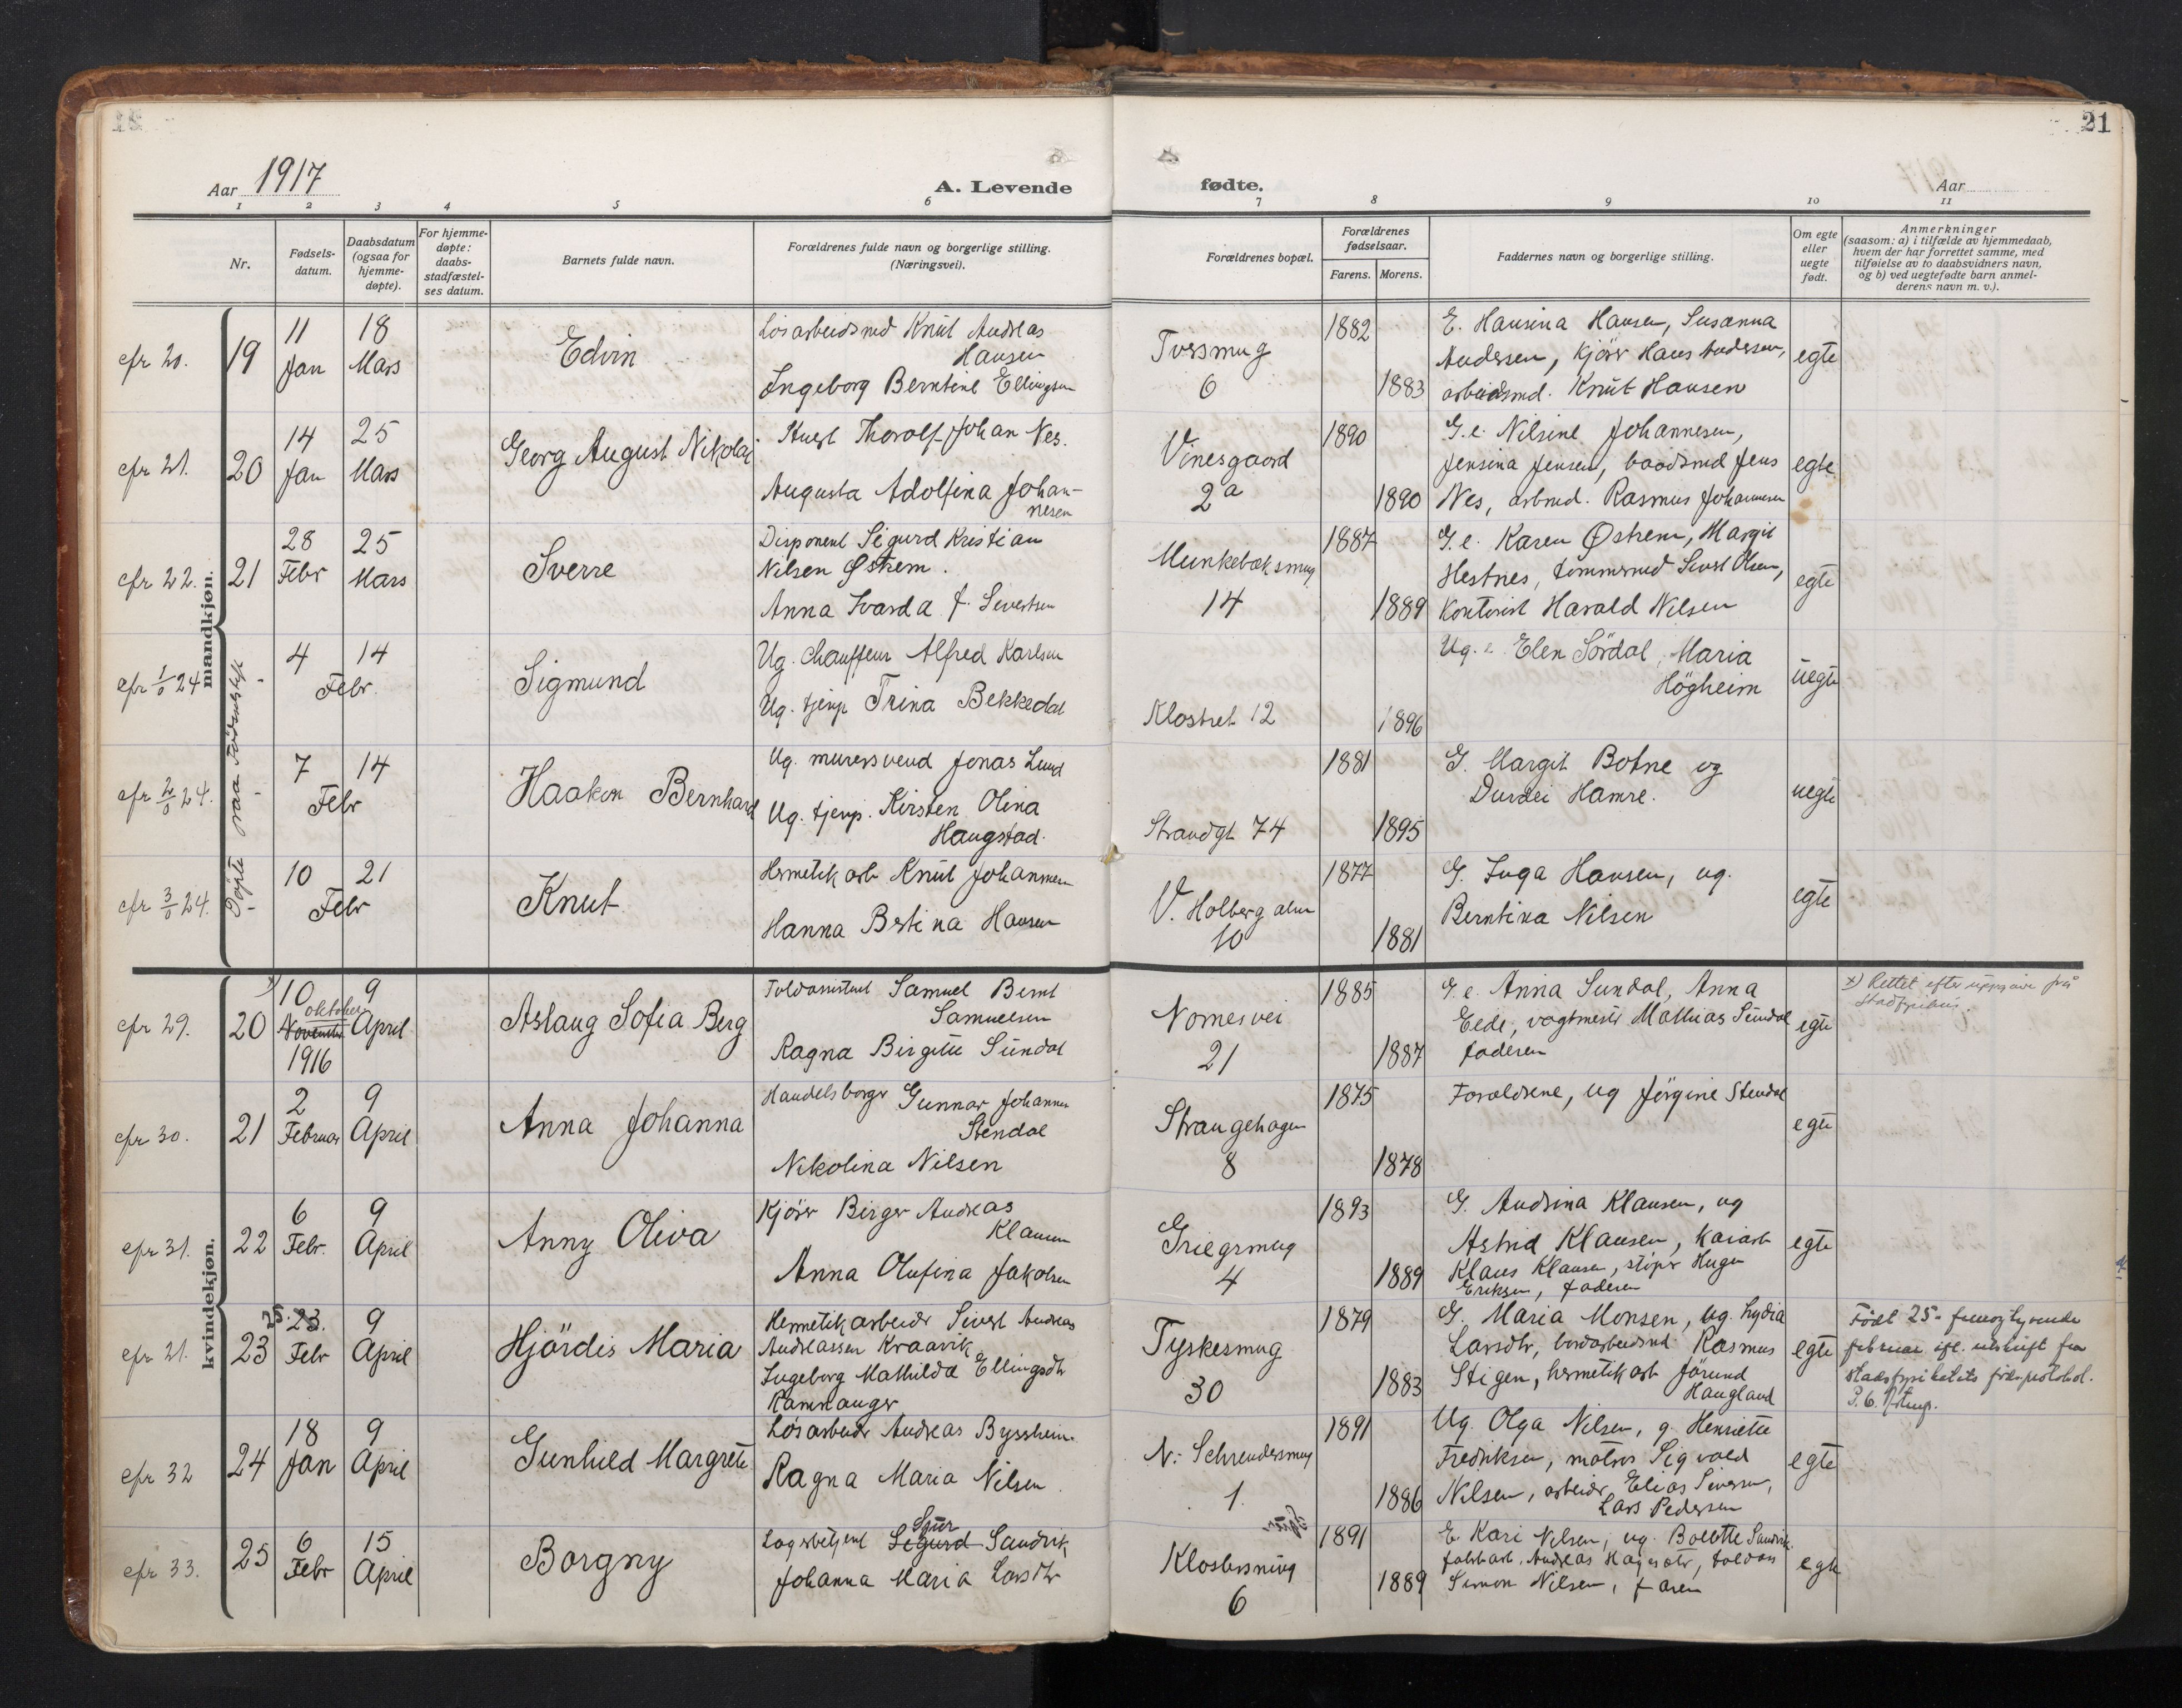 21
Aar 1917
A. Levende
fødte.
Aar
1 2 3 4 5 6 7 8 9 10 11
Nr.
Fødsels-
datum.
Daabsdatum
(ogsaa for
hjemme-
døpte).
For hjemme-
døpte:
daabs-
stadfæstel-
ses datum.
Barnets fulde navn.
Forældrenes fulde navn og borgerlige stilling.
(Næringsvei).
Forældrenes bopæl.
Forældrenes
fødselsaar.
Farens. Morens.
Faddernes navn og borgerlige stilling.
Om egte
eller
uegte
født.
Anmerkninger
(saasom: a) i tilfælde av hjemmedaab,
hvem der har forrettet samme, med
tilføielse av to daabsvidners navn,
og b) ved uegtefødte barn anmel-
derens navn m. v.).
mandkjøn.
Døpte paa Fødselsstift
cfr 20.
19
11
Jan
18
Mars
Edvin
Løsarbeidsmd Knut Andreas
Hansen
Ingeborg Berntine Ellingsen
Tversmug
6
1882
1883
E. Hansina Hansen, Susanna
Andersen, Kjörer Hans Andersen,
arbeidsmd. Knut Hansen
egte
cfr 21.
20
14
Jan
25
Mars
Georg August Nikolai
Stuert Thoralf Johan Nes.
Augusta Adolfina Johan-
nesen
Vinesgaard
2a
1890
1890
G.e. Nilsine Johannesen,
Jensina Jensen, baadsmd Jens
Nes, arbmd. Rasmus Johannesen
egte
cfr 22.
21
28
Febr
25
Mars
Sverre
Disponent Sigurd Kristian
Nilsen Østrem.
Anna Svarda f. Sivertsen
Munkebæksmug
14
1887
1889
G.e. Karen Østrem, Margit
Hestnes, tømmermd Sivert Olsen,
Kontorist Harald Nilsen
egte
cfr 1/0 24
4
14
Febr.
Sigmund
Ug. chauffeur Alfred Karlsen
Ug. tjenp Trina Bekkedal
Klostret 12
1896
Ug. e. Elen Sördal, Maria
Högheim
uegte
cfr 2/0 24.
7
14
Febr
Haakon Bernhard
Ug. murersvend Jonas Lund
Ug. tjenp. Kirsten Olina
Haugstad.
Strandgt 74
1881
1895
G. Margit Botne og
Durdei Hamre.
uegte
cfr 3/0 24.
10
21
Febr
Knut
Hermetikarb Knut Johannesen
Hanna Bertina Hansen
V. Holberg alm
10
1877
1881
G. Inga Hansen, ug.
Berntina Nilsen
egte
kvindekjøn.
cfr 29.
20
x) 10
oktober
November
1916
9
April
Aslaug Sofia Berg
Toldassistent Samuel Bernt
Samuelsen
Ragna Birgitte Sundal
Nornesvei
21
1885
1887
G.e. Anna Sundal, Anna
Eede, vagtmester Mathias Sundal
faderen
egte
x) Rettet efter opgave fra
Stadfysikus.
cfr 30.
21
2
Februar
9
April
Anna Johanna
Handelsborger Gunnar Johannes
Stendal
Nikolina Nilsen
Strangehagen
8
1875
1878
Forældrene, ug Jörgine Stendal
egte
cfr 31.
22
6
Febr.
9
April
Anny Oliva
Kjörer Birger Andreas
Klausen
Anna Olufina Jakobsen
Griegsmug
4
1893
1889
G. Andrina Klausen, ug
Astrid Klausen, kaiarb
Klaus Klausen, stöper Hugo
Eriksen, faderen
egte
cfr 21.
23
25. 23.
Febr
9
April
Hjördis Maria
Hermetikarbeider Sivert Andreas
Andreassen Kraavik
Ingeborg Mathilda Ellingsdtr
Ramnanger
Tyskesmug
30
1879
1883
G. Maria Monsen, ug. Lydia
Larsdtr, bordarbeidsmd Rasmus
Stigen, hermetikarb Jörund
Haugland
egte
Födt 25- femogtyvende
februar ifl. utskrift fra
stadsfysikatets före protokol.
cfr 32
24
18
Jan
9
April
Gunhild Margrete
Løsarbeider Andreas Byssheim.
Ragna Maria Nilsen.
N. Schreudersmug
1.
1891
1886
Ug. Olga Nilsen, g. Henriette
Fredriksen, matros Sigvald
Nilsen, arbeider Elias Siversen,
Lars Pedersen
egte
cfr 33.
25
6
Febr
15
April
Borgny
Sjur
Lagerbetjent Sigurd Sandvik
Johanna Maria Larsdtr
Klostersmug
6
1891
1889
E. Kari Nilsen, ug. Bolette Sandvik
fabrkarb. Andreas Hagesæter, toldass
Simon Nilsen, faren
egte